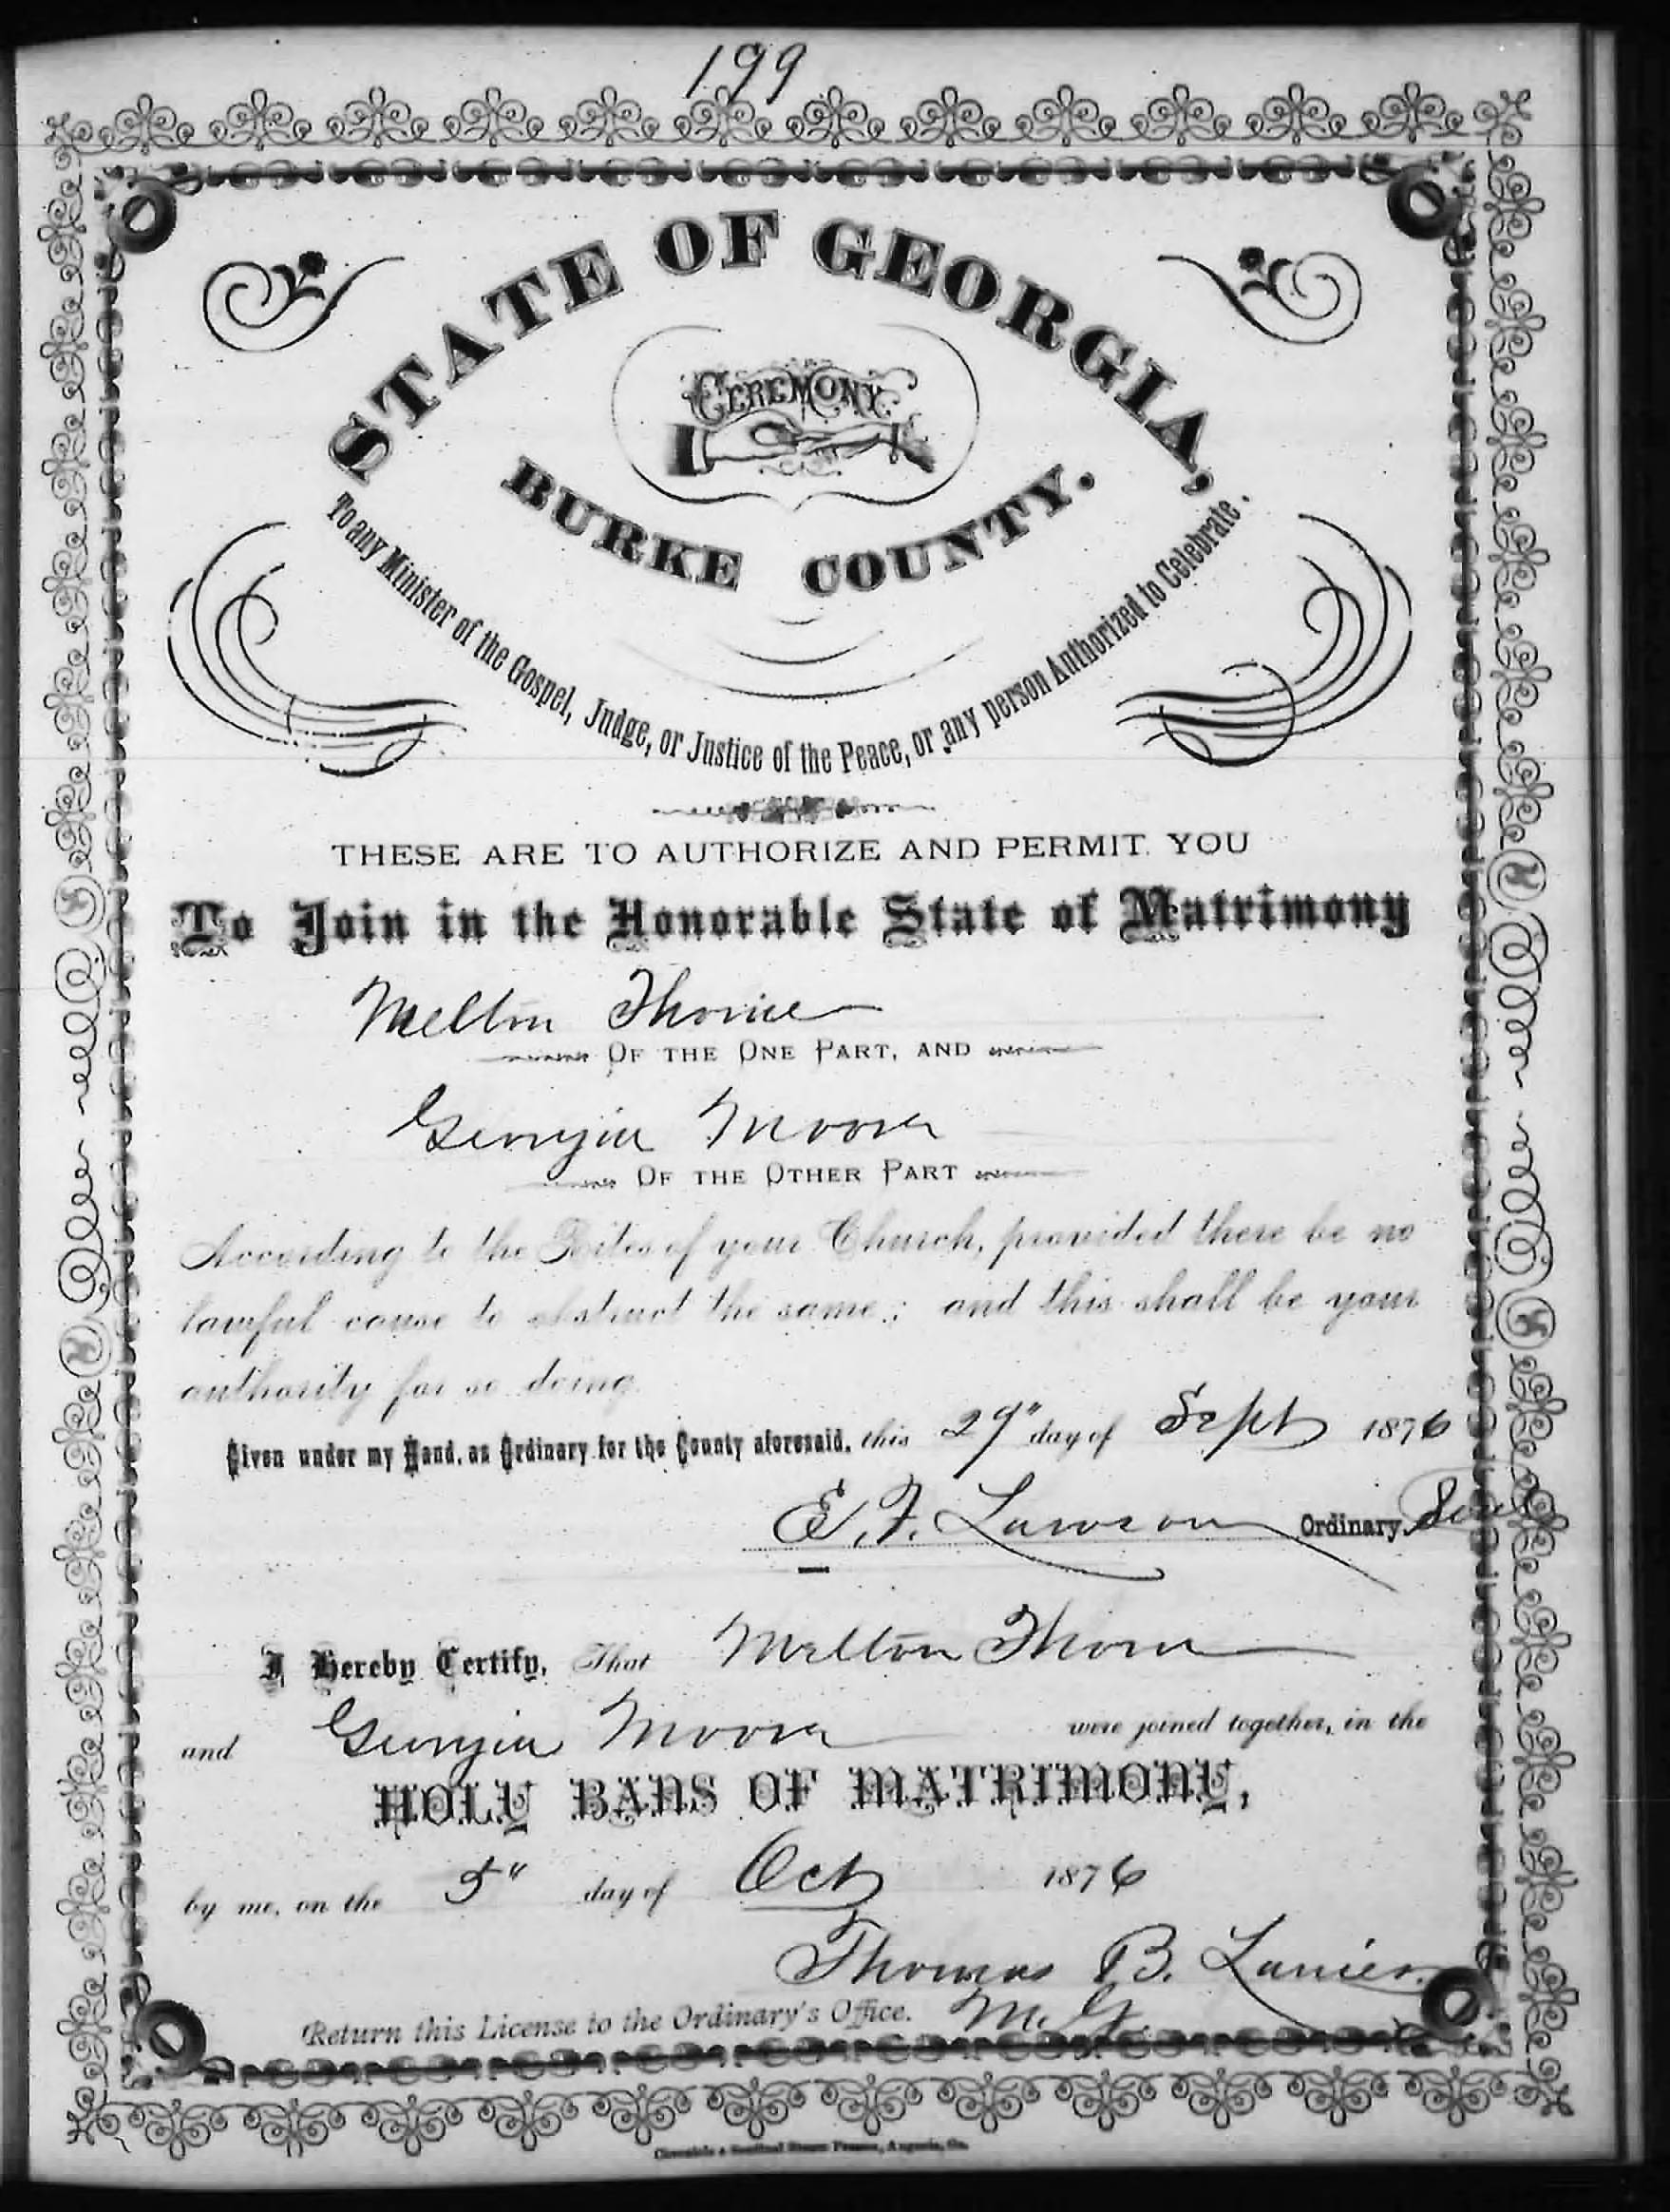 199
STATE OF GEORGIA,
CEREMONY
BURKE COUNTY.
To any Minister of the Gospel, Judge, or Justice of the Peace, or any person Authorized to Celebrate.
THESE ARE TO AUTHORIZE AND PERMIT YOU
To Join in the Honorable State of Matrimony
Melton Thorne
OF THE ONE PART, AND
Georgia Moore
OF THE OTHER PART
According to the Rites of your Church, provided there be no
lawful cause to obstruct the same; and this shall be your
authority for so doing.
Given under my Hand, as Ordinary for the County aforesaid, this 29" day of Sept 1876
E. F. Lawson Ordinary, Seal
I Hereby Certify, That Melton Thorn
and Georgia Moore were joined together, in the
HOLY BANS OF MATRIMONY,
by me, on the 5" day of Oct 1876
Thomas B. Lanier
Return this License to the Ordinary's Office. M. G.
Chronicle & Sentinel Steam Presses, Augusta, Ga.